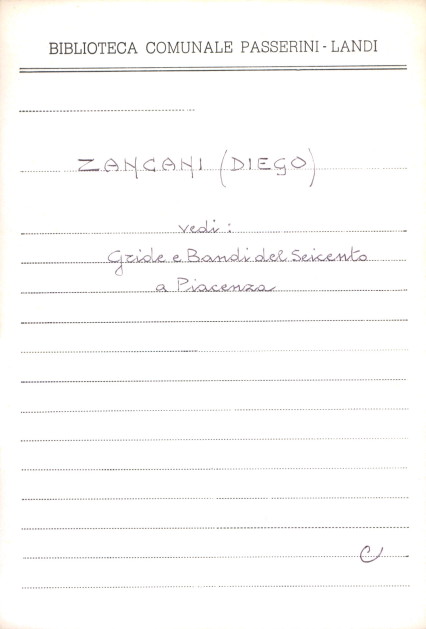 BIBLIOTECA COMUNALE PASSERINI-LANDI
ZANGANI (DIEGO)
vedi:
Gride e Bandi del Seicento
a Piacenza
C